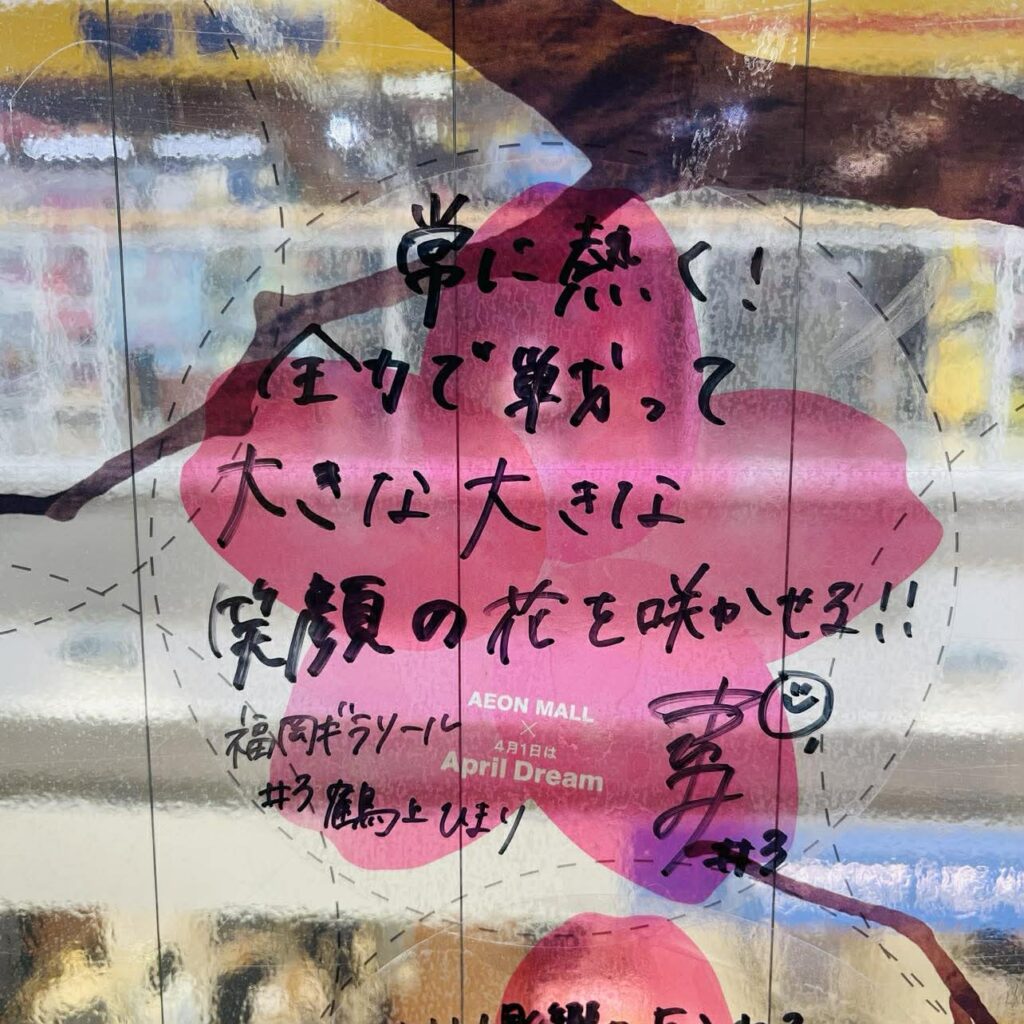 常に熱く!
全力で戦って
大きな大きな
笑顔の花を咲かせる!!
AEON MALL
×
4月1日は
April Dream
福岡ギラソール
#3 鶴上ひまり
#3